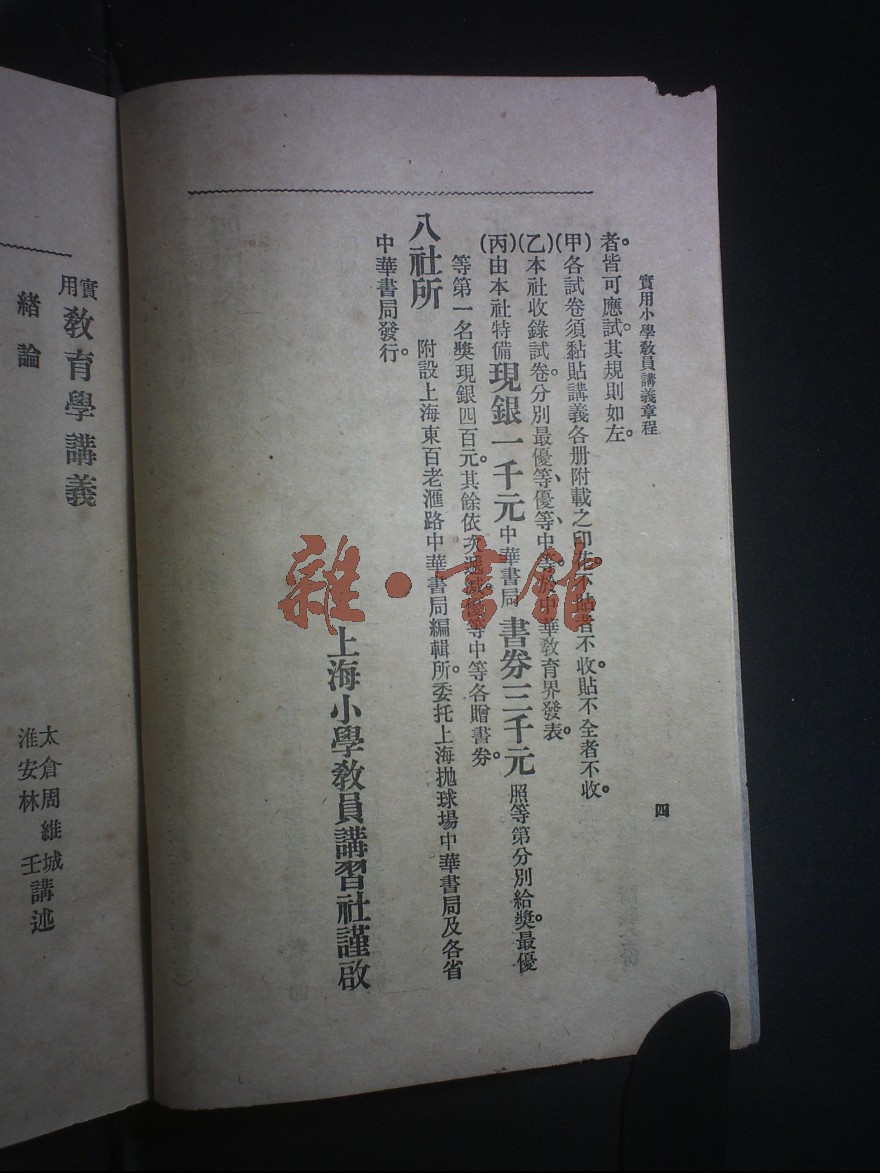 實用小學教員講義章程
四
者。皆可應試。其規則如左。
(甲)各試卷須黏貼講義各册附載之印花不貼者不收。貼不全者不收。
(乙)本社收錄試卷。分別最優等、優等、中等。於中華教育界發表。
(丙)由本社特備現銀一千元中華書局書券三千元照等第分別給獎。最優
等第一名獎現銀四百元。其餘依次遞減。優等中等各贈書券。
八社所 附設上海東百老滙路中華書局編輯所。委托上海拋球場中華書局及各省
中華書局發行。
上海小學教員講習社謹啟
雜·書館
實用教育學講義
緒論
太倉周維城
淮安林壬講述